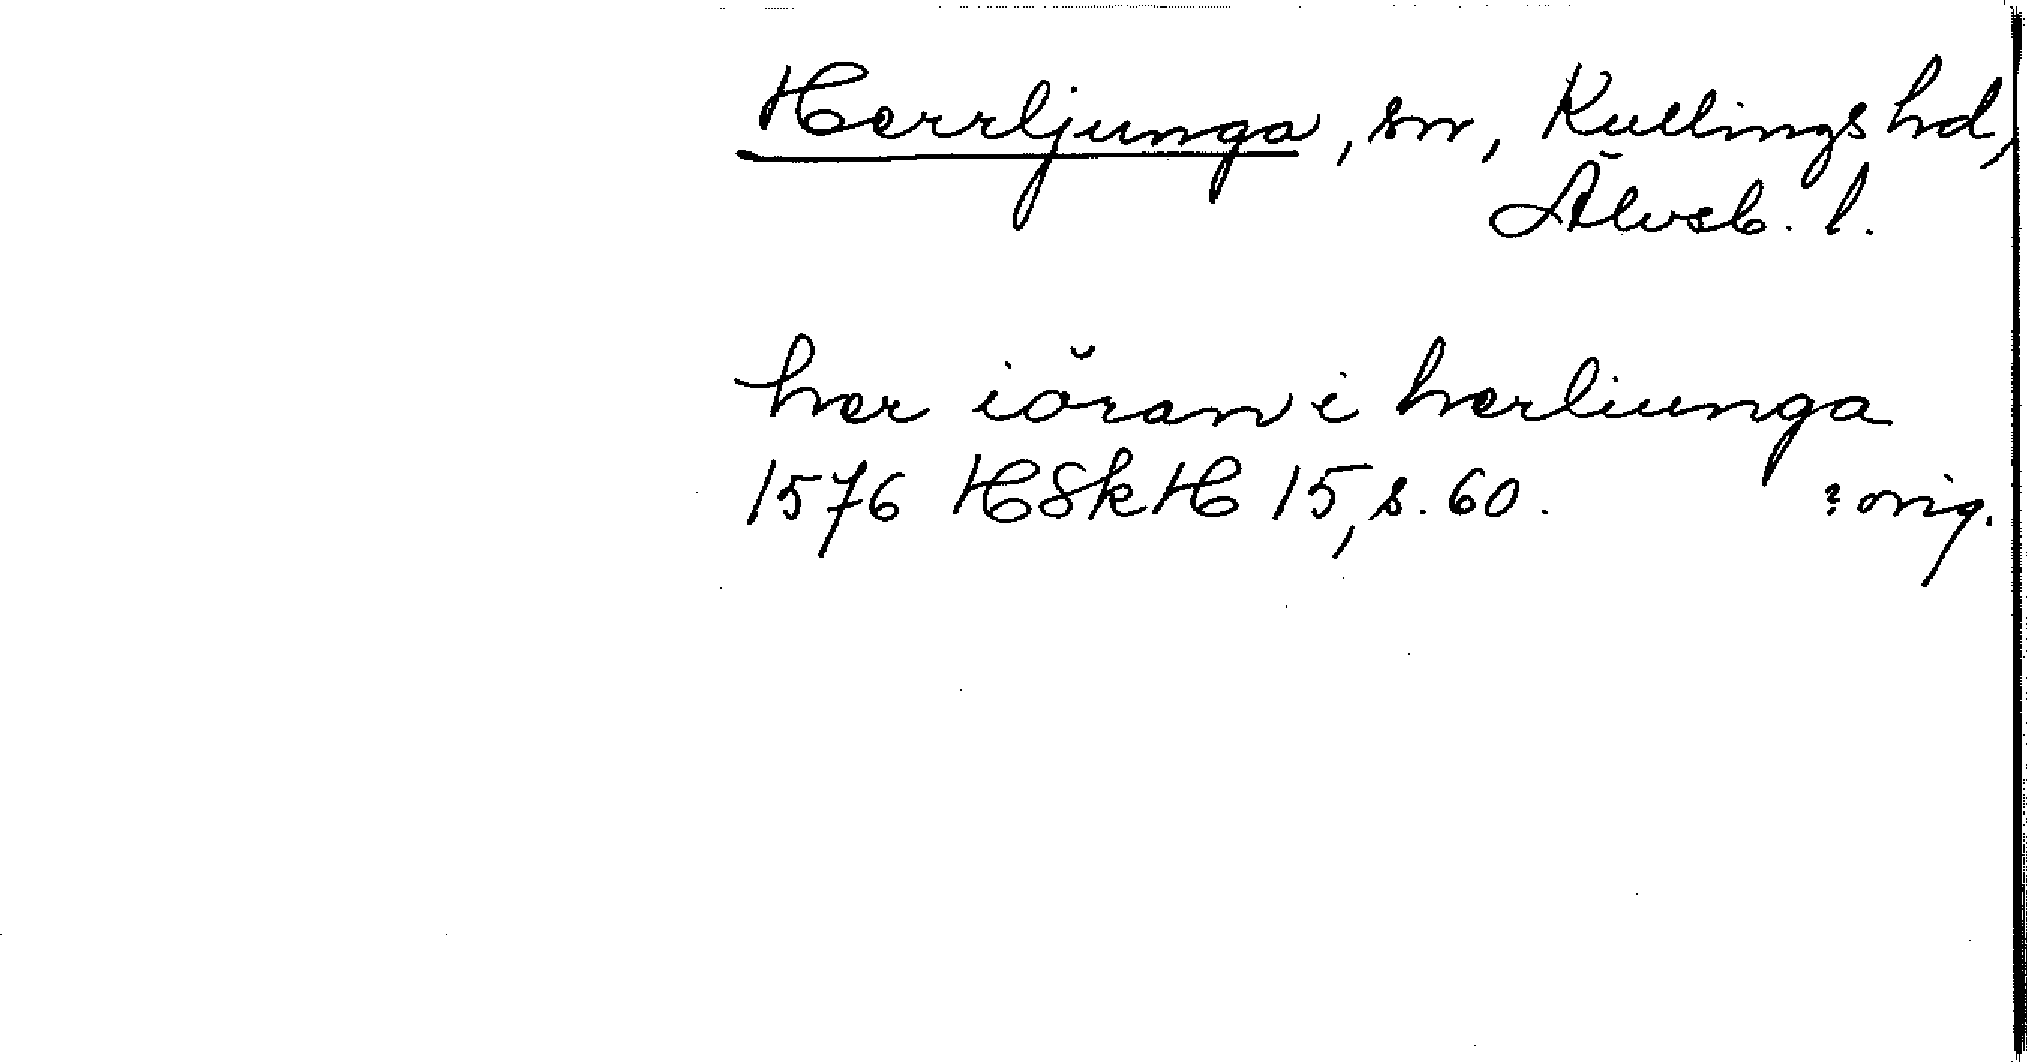 Herrljunga, sn, Kullings hd,
Älvsb. l.
her iöran i herliunga
1576 HSkH 15, s. 60. ? orig.